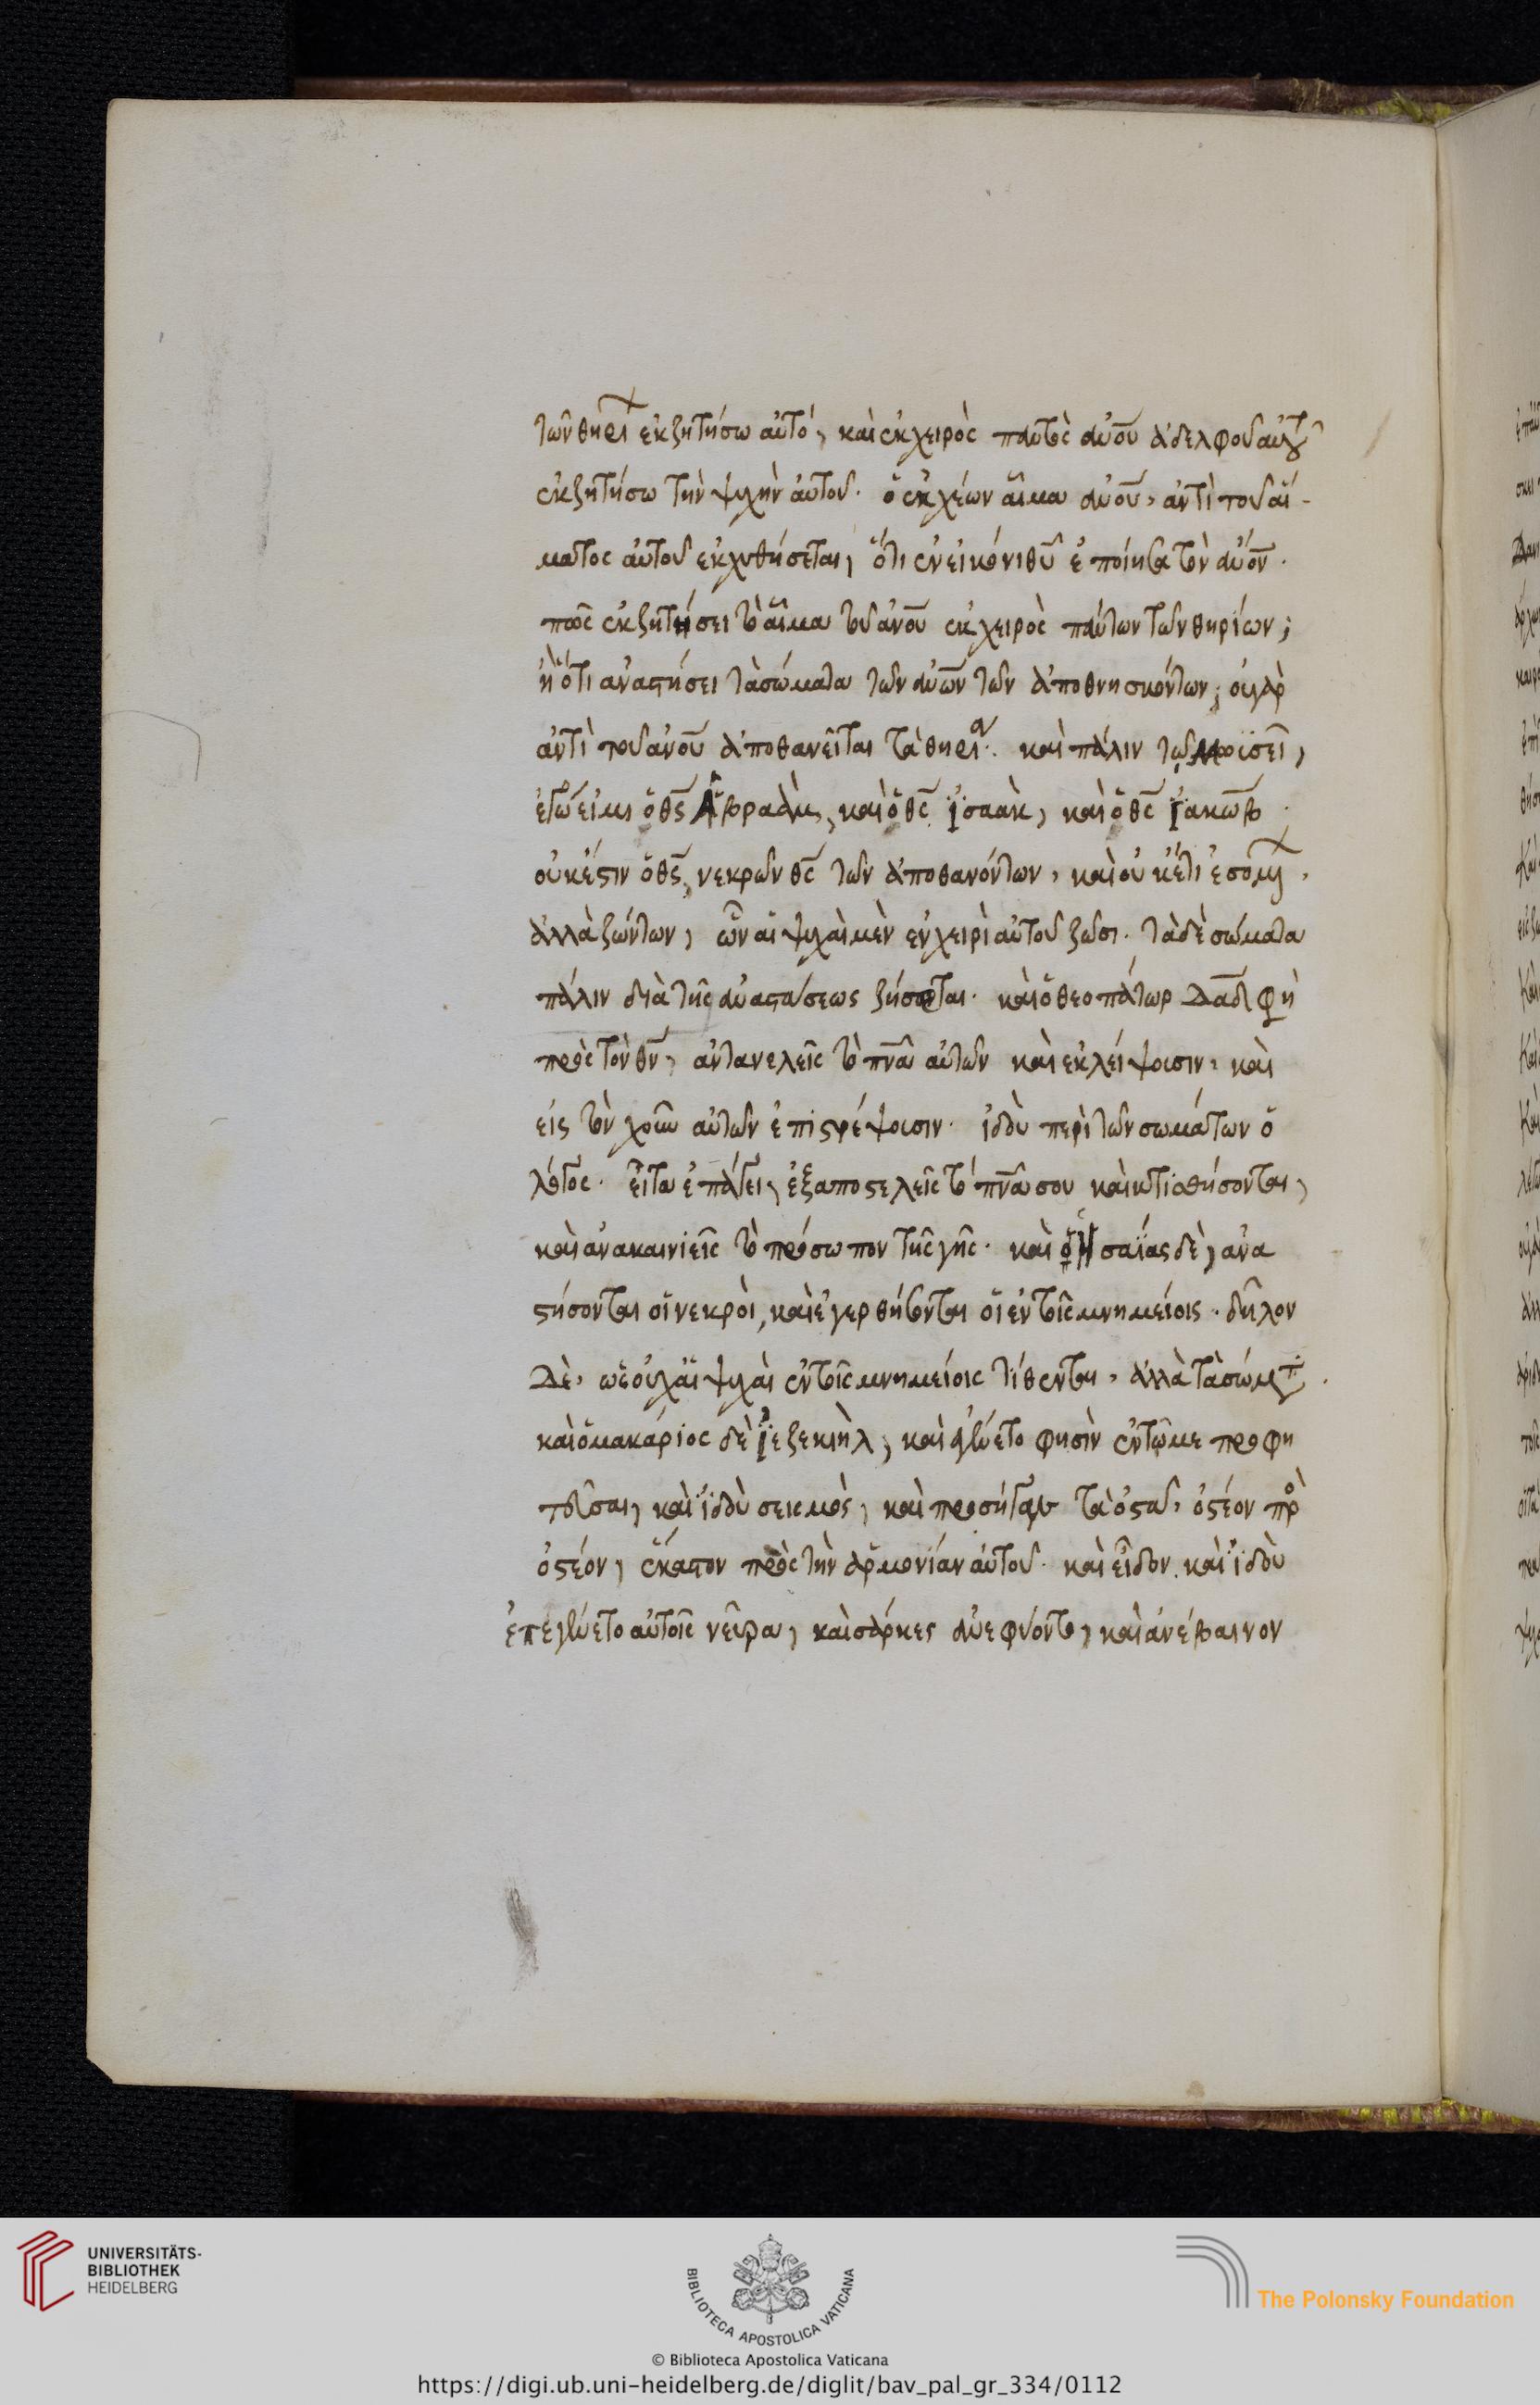 τῶν θηρί ἐκζητήσω αὐτό, καὶ ἐκ χειρὸς παντὸς ἀνου ἀδελφοῦ αὐτοῦ
ἐκζητήσω τὴν ψυχὴν αὐτοῦ. ὁ ἐκχέων αἷμα ἀνου, ἀντὶ τοῦ αἵ-
ματος αὐτοῦ ἐκχυθήσεται, ὅτι ἐν εἰκόνι θυ ἐποίησα τὸν ἀνον.
πῶς ἐκζητήσει τὸ αἷμα τοῦ ἀνου ἐκ χειρὸς πάντων τῶν θηρίων;
ἢ ὅτι ἀναστήσει τὰ σώματα τῶν ἀνων τῶν ἀποθνησκόντων; οὐ γὰρ
ἀντὶ τοῦ ἀνου ἀποθανεῖται τὰ θηρία. καὶ πάλιν τῷ Μωϊσεῖ,
ἐγώ εἰμι ὁ θς Ἀβραὰμ, καὶ ὁ θς Ἰσαὰκ, καὶ ὁ θς Ἰακώβ.
οὐκ ἔστιν ὁ θς, νεκρῶν θς τῶν ἀποθανόντων, καὶ οὐκ έτι ἐσομ.
ἀλλὰ ζώντων, ὧν αἱ ψυχαὶ μὲν ἐν χειρὶ αὐτοῦ ζῶσι. τὰ δὲ σώματα
πάλιν διὰ τῆς ἀναστάσεως ζήσεται. καὶ ὁ θεοπάτωρ Δαδ φη
πρὸς τὸν θν, ἀντανελεῖς τὸ πνα αὐτῶν καὶ ἐκλείψουσιν, καὶ
εἰς τὸν χοῦν αὐτῶν ἐπιστρέψουσιν. ἰδοὺ περὶ τῶν σωμάτων ὁ
λόγος. εἶτα ἐπάγει, ἐξαποστελεῖς τὸ πνα σου καὶ κτισθήσονται,
καὶ ἀνακαινιεῖς τὸ πρόσωπον τῆς γῆς. καὶ ὁ Ἡσαΐας δὲ, ἀνα
στήσονται οἱ νεκροὶ, καὶ ἐγερθήσονται οἱ ἐν τοῖς μνημείοις. δῆλον
δὲ, ὡς οὐχ αἱ ψυχαὶ ἐν τοῖς μνημείοις τίθενται, ἀλλὰ τὰ σώματ.
καὶ ὁ μακάριος δὲ Ἰεζεκιὴλ, καὶ ἐγένετο φησὶν ἐν τῷ με προφη
τεῦσαι, καὶ ἰδοὺ σεισμὸς, καὶ προσήγαγε τὰ ὀστᾶ, ὀστέον πρὸ
ὀστέον, ἕκαστον πρὸς τὴν ἁρμονίαν αὐτοῦ. καὶ εἶδον. καὶ ἰδοὺ
ἐπεγένετο αὐτοῖς νεῦρα, καὶ σάρκες ἀνεφύοντο, καὶ ἀνέβαινον
UNIVERSITÄTS-
BIBLIOTHEK
HEIDELBERG
BIBLIOTECA APOSTOLICA VATICANA
The Polonsky Foundation
© Biblioteca Apostolica Vaticana
https://digi.ub.uni-heidelberg.de/diglit/bav_pal_gr_334/0112